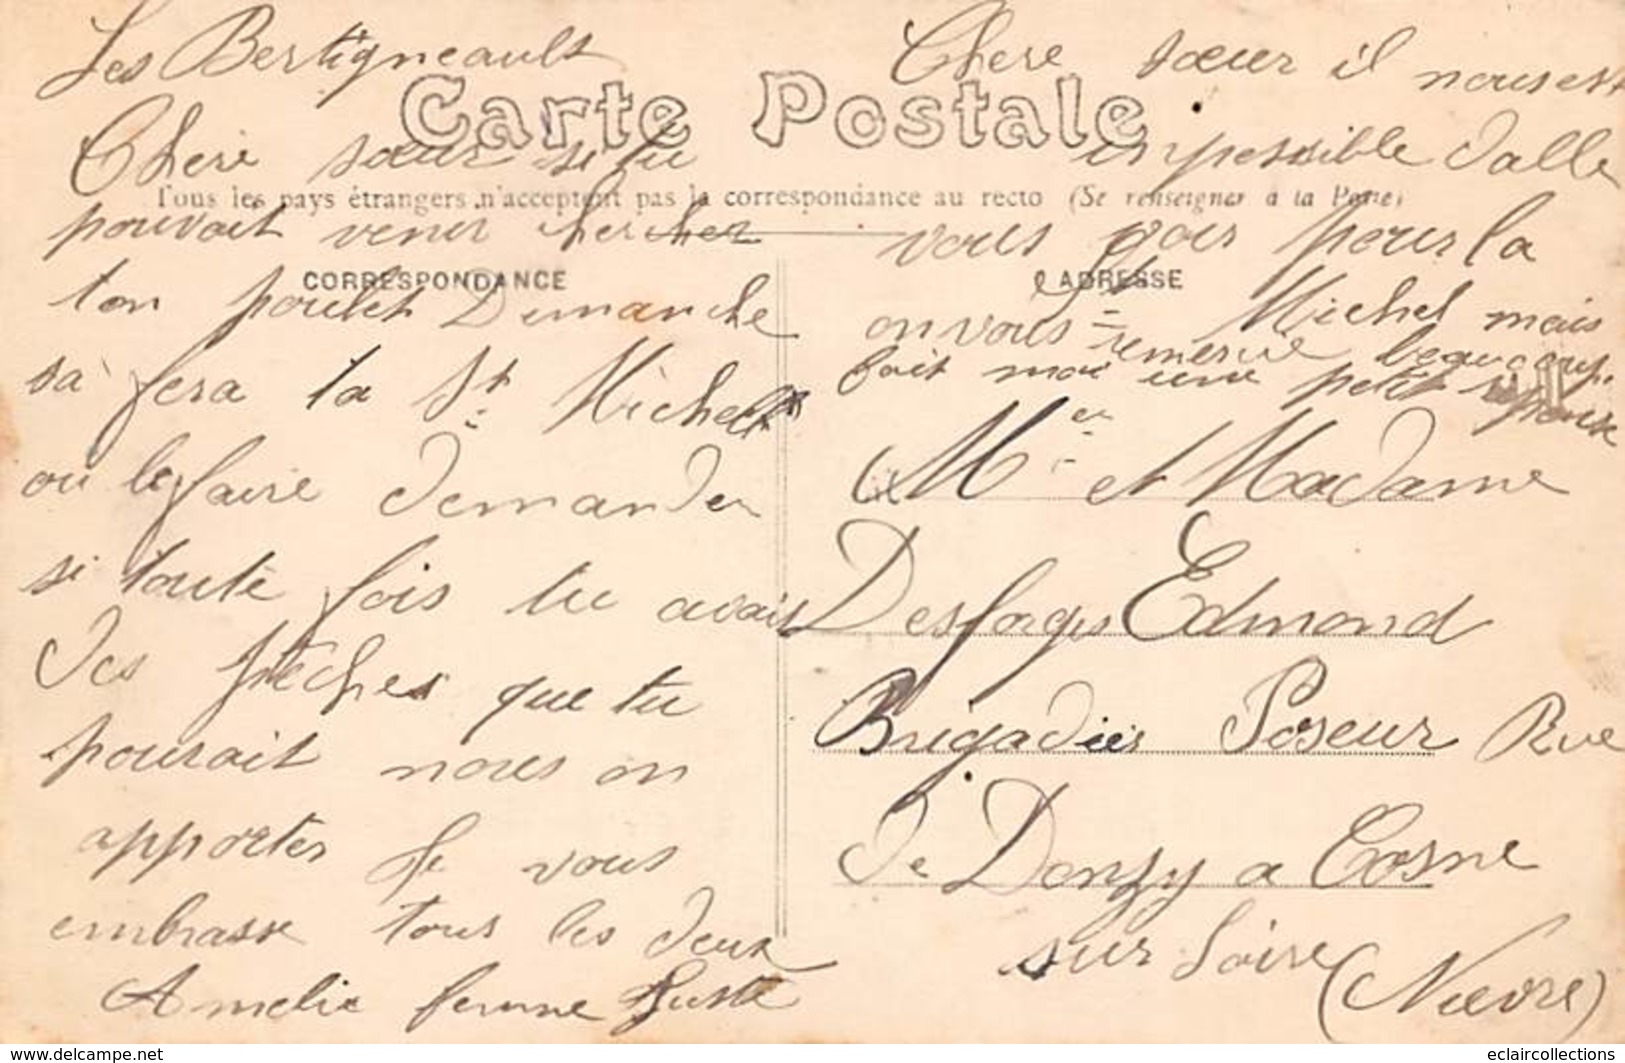 Les Bertigneault
Chere sœur si tu
pouvait venir chercher
ton poulet Dimanche
sa fera la St Michel
ou le faire demander
si toute fois tu avais
des prèches que tu
pourait nous en
apporter Je vous
embrasse tous les deux
Amelie femme Juste
Carte Postale
Tous les pays étrangers n'acceptent pas la correspondance au recto (Se renseigner à la Poste)
CORRESPONDANCE
ADRESSE
Chere sœur il nous est
impossible dalle
vous voir pour la
St Michel mais
on vous remercie beaucoup.
fait moi une petit reponse
Mer et Madame
Desforges Edmond
Brigadier Poseur Rue
de Donzy a Cosne
sur Loire (Nievre)
www.delcampe.net
eclaircollections